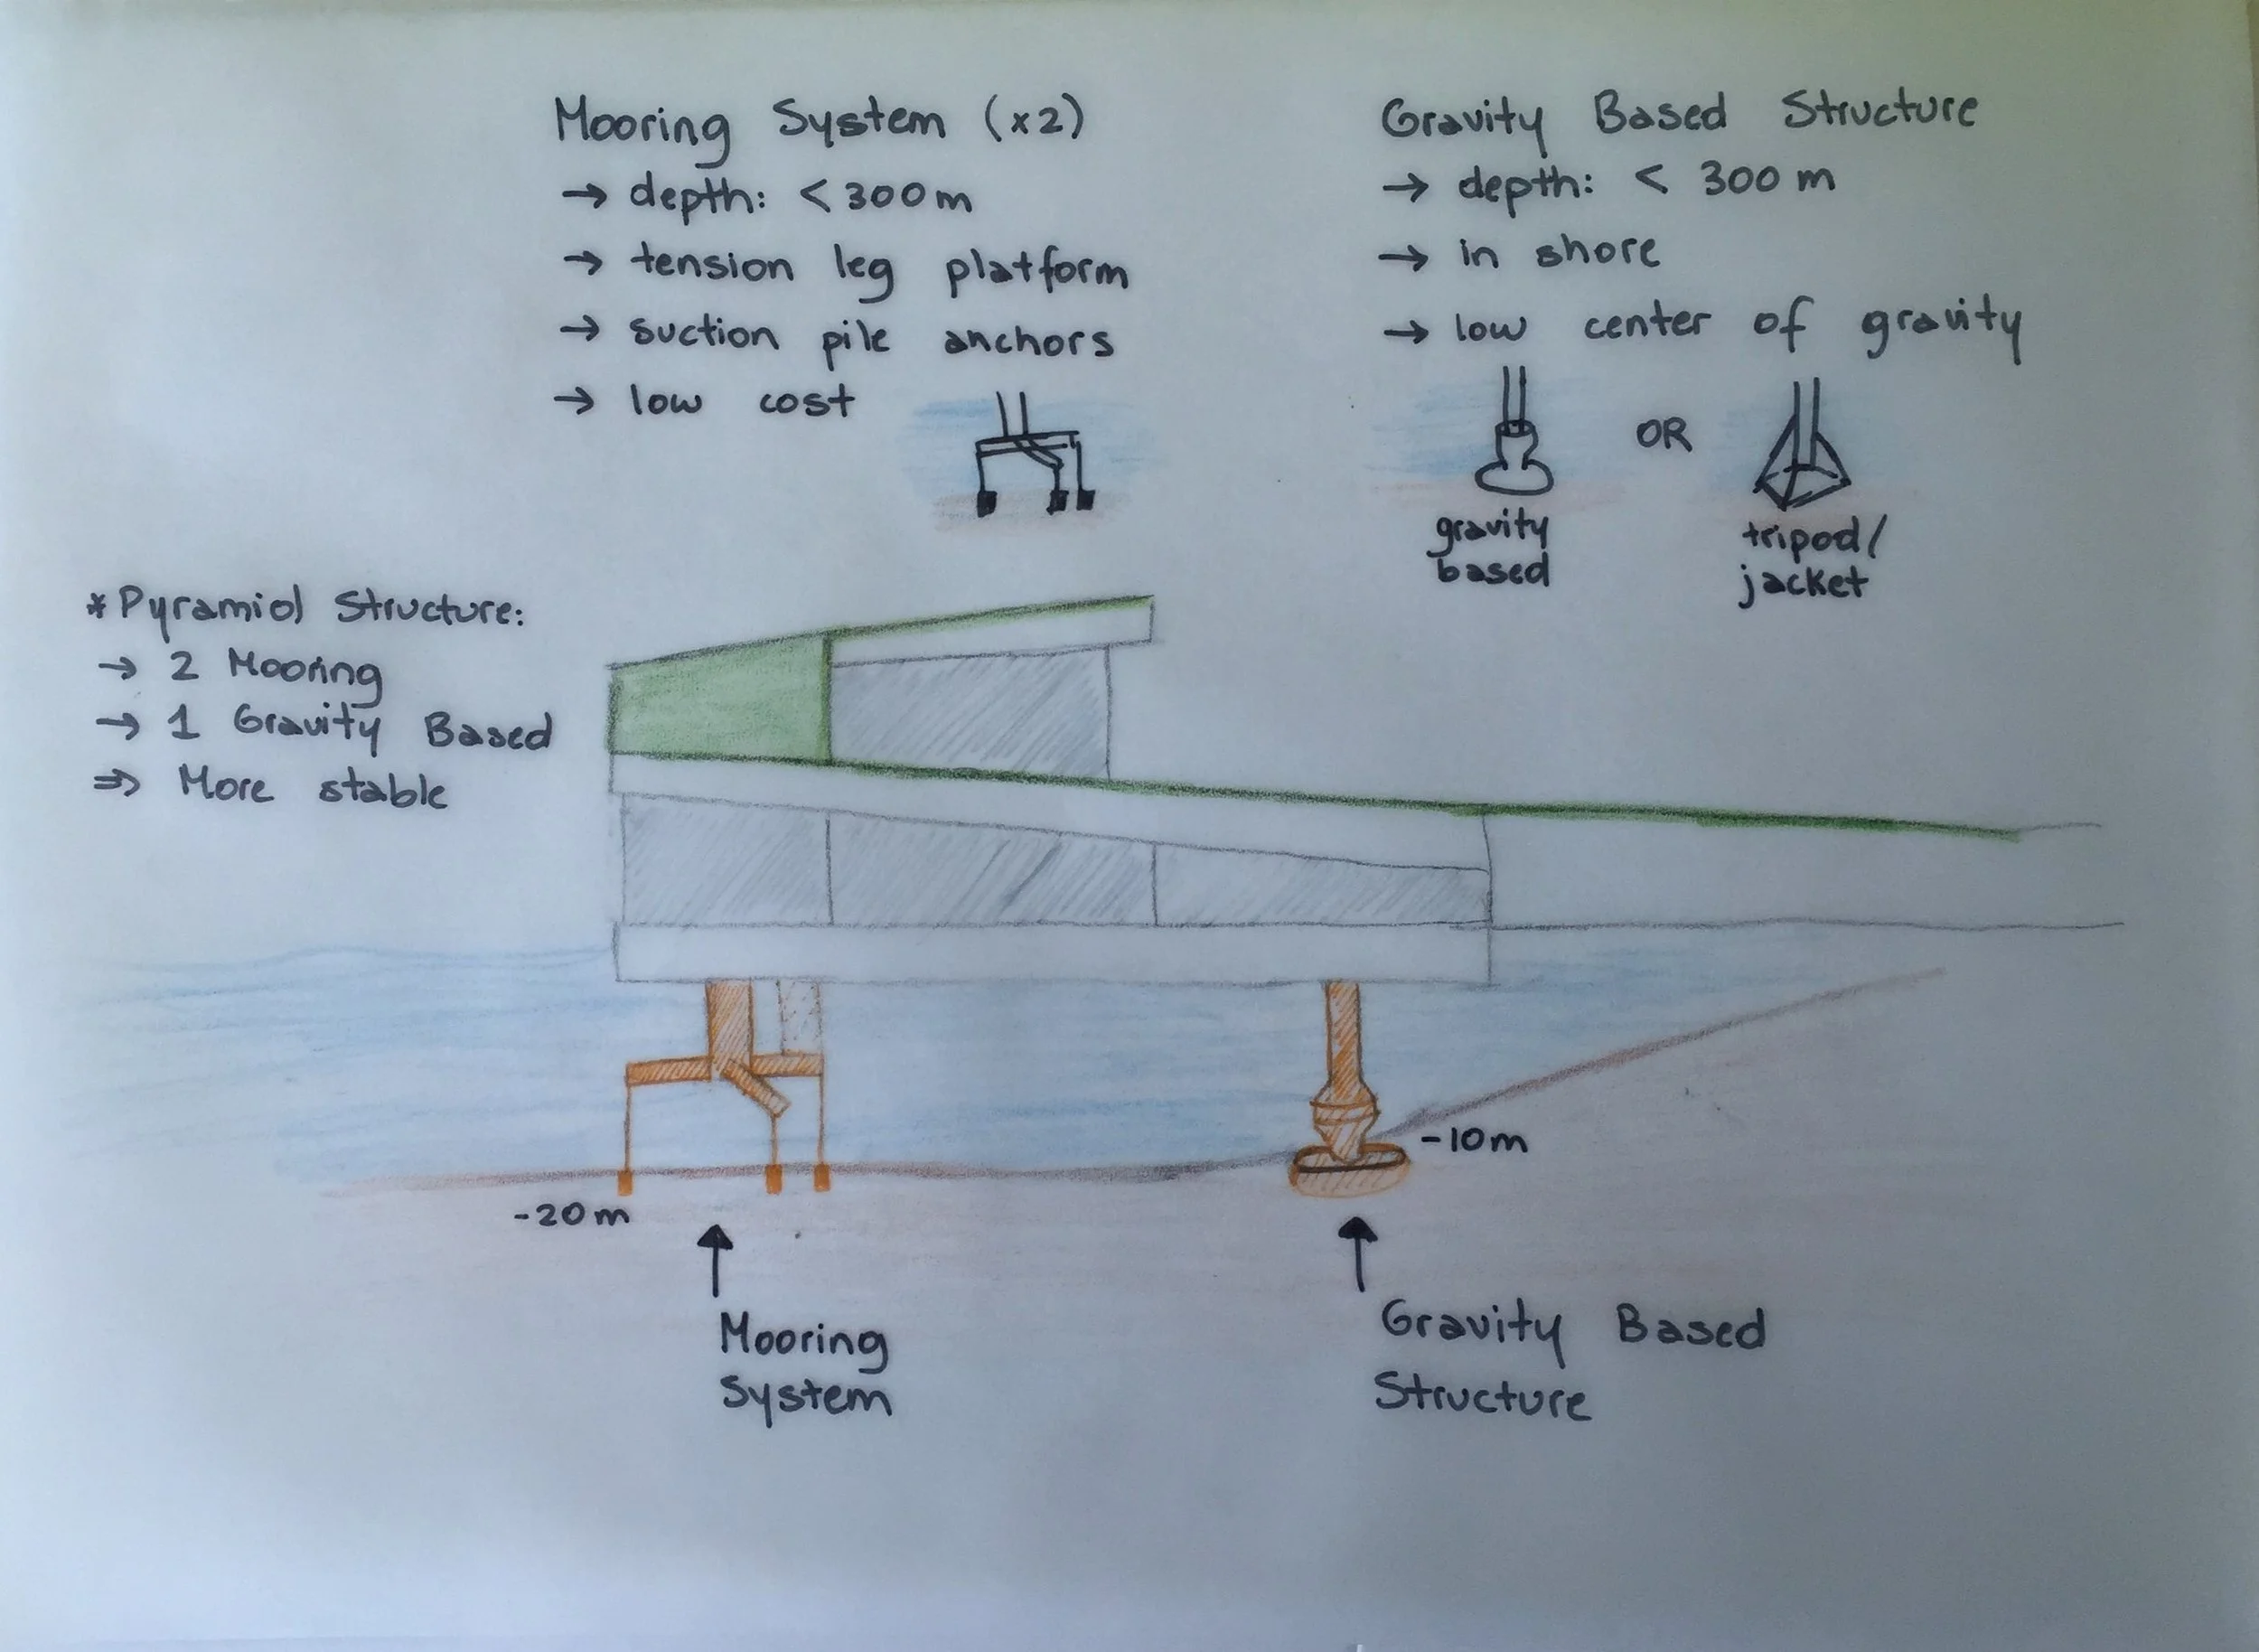 Mooring System (x2)
→ depth: < 300 m
→ tension leg platform
→ suction pile anchors
→ low cost
Gravity Based Structure
→ depth: < 300 m
→ in shore
→ low center of gravity
gravity
based
OR
tripod/
jacket
* Pyramid Structure:
→ 2 Mooring
→ 1 Gravity Based
⇒ More stable
-10m
-20m
Mooring
System
Gravity Based
Structure